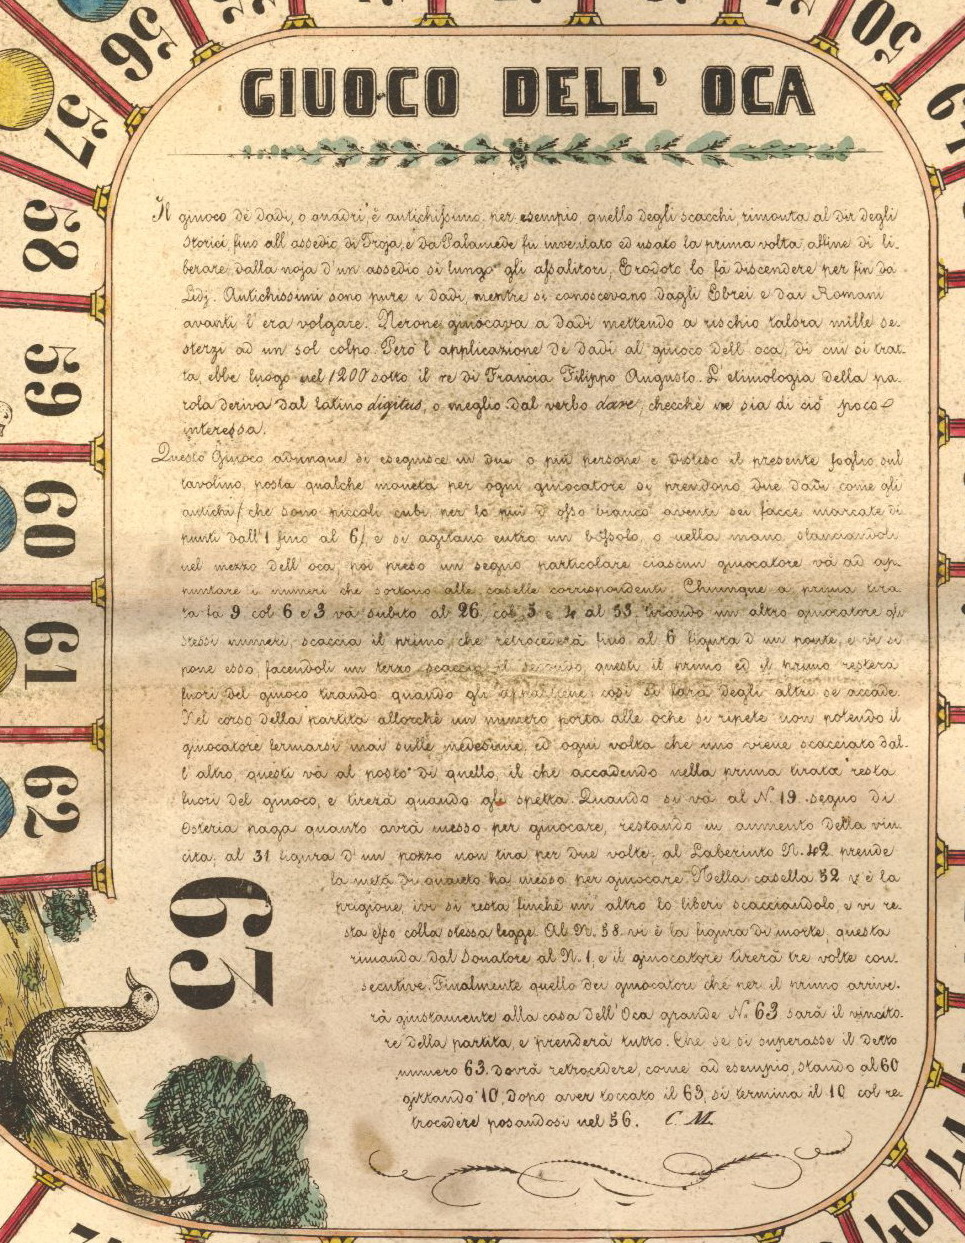 GIUOCO DELL' OCA
Il giuoco dè dadi, o quadri è antichissimo. per esempio, quello degli scacchi, rimonta al dir degli
storici, fino all' assedio di Troja, e da Palamede fu inventato ed usato la prima volta affine di li-
berare dalla noja d'un assedio sì lungo gli assalitori, Erodoto lo fà discendere per fin da
Lidj. Antichissimi sono pure i dadi, mentre si conoscevano dagli Ebrei e dai Romani
avanti l' era volgare. Nerone giuocava a dadi mettendo a rischio talora mille se-
sterzi ad un sol colpo. Però l' applicazione dè dadi al giuoco dell' oca, di cui si trat-
ta, ebbe luogo nel 1200 sotto il re di Francia Filippo Augusto. L' etimologia della pa-
rola deriva dal latino digitus, o meglio dal verbo dare, checchè ne sia di ciò poco
interessa.
Questo Giuoco adunque si eseguisce in due o più persone e disteso il presente foglio sul
tavolino, posta qualche moneta per ogni giuocatore si prendono due dadi come gli
antichi / che sono piccoli cubi per lo più d' osso bianco aventi sei facce marcate di
punti dall' 1 fino al 6 /, e si agitano entro un bossolo, o nella mano slanciandoli
nel mezzo dell' oca, poi preso un segno particolare ciascun giuocatore và ad ap-
puntare i numeri che sortono alle caselle corrispondenti. Chiunque a prima tira
ta fa 9 col 6 e 3 và subito al 26 col 5 e 4 al 53 tirando un altro giuocatore gli
stessi numeri, scaccia il primo, che retrocederà fino al 6 figura d' un ponte, e vi si
pone esso, facendoli un terzo scaccia il secondo, questi il primo ed il primo resterà
fuori del giuoco tirando quando gli appartiene: così si farà degli altri se accade.
Nel corso della partita allorchè un numero porta alle oche si ripete non potendo il
giuocatore fermarsi mai sulle medesime, ed ogni volta che uno viene scacciato dal-
l' altro, questi và al posto di quello, il che accadendo nella prima tirata resta
fuori del giuoco, e tirerà quando gli spetta. Quando si và al N. 19 segno di
Osteria paga quanto avrà messo per giuocare, restando in aumento della vin-
cita; al 31 figura d' un pozzo non tira per due volte; al Laberinto N. 42 prende
la metà di quanto ha messo per giuocare. Nella casella 52 v' è la
prigione, ivi si resta finchè un' altro lo liberi scacciandolo, e vi re-
sta esso colla stessa legge. Al N. 58 vi è la figura di morte, questa
rimanda dal Sonatore al N. 1, e il giuocatore tirerà tre volte con-
secutive. Finalmente quello dei giuocatori che per il primo arrive-
rà giustamente alla casa dell' Oca grande N. 63 sarà il vincito-
re della partita, e prenderà tutto. Che se si superasse il detto
numero 63 dovrà retrocedere, come ad esempio, stando al 60
gittando 10, dopo aver toccato il 63, si termina il 10 col re-
trocedere posandosi nel 56. C. M.
63
56
57
58
59
60
61
62
50